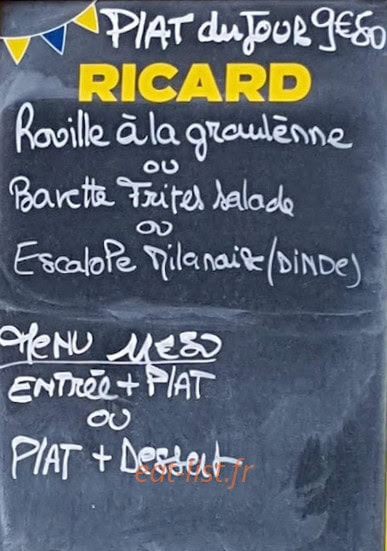 PLAT du JOUR 9€50
RICARD
Rouille à la graulènne
ou
Bavette Frites salade
ou
Escalope Milanaise (DINDE)
MENU 11€50
ENTRée + PlAT
OU
PlAT + Dessert
eat-list.fr